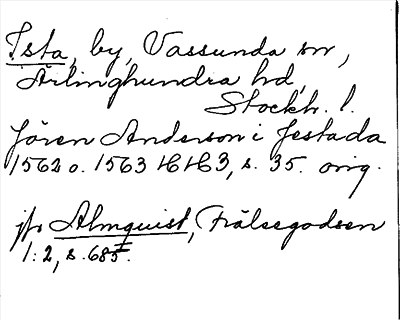 Ista, by, Vassunda sn,
Ärlinghundra hd,
Stockh. l.
Jören Anderson i Jestada
1562 o. 1563 HH 3, s. 35. orig.
jfr Almquist, Frälsegodsen
1:2, s. 685.